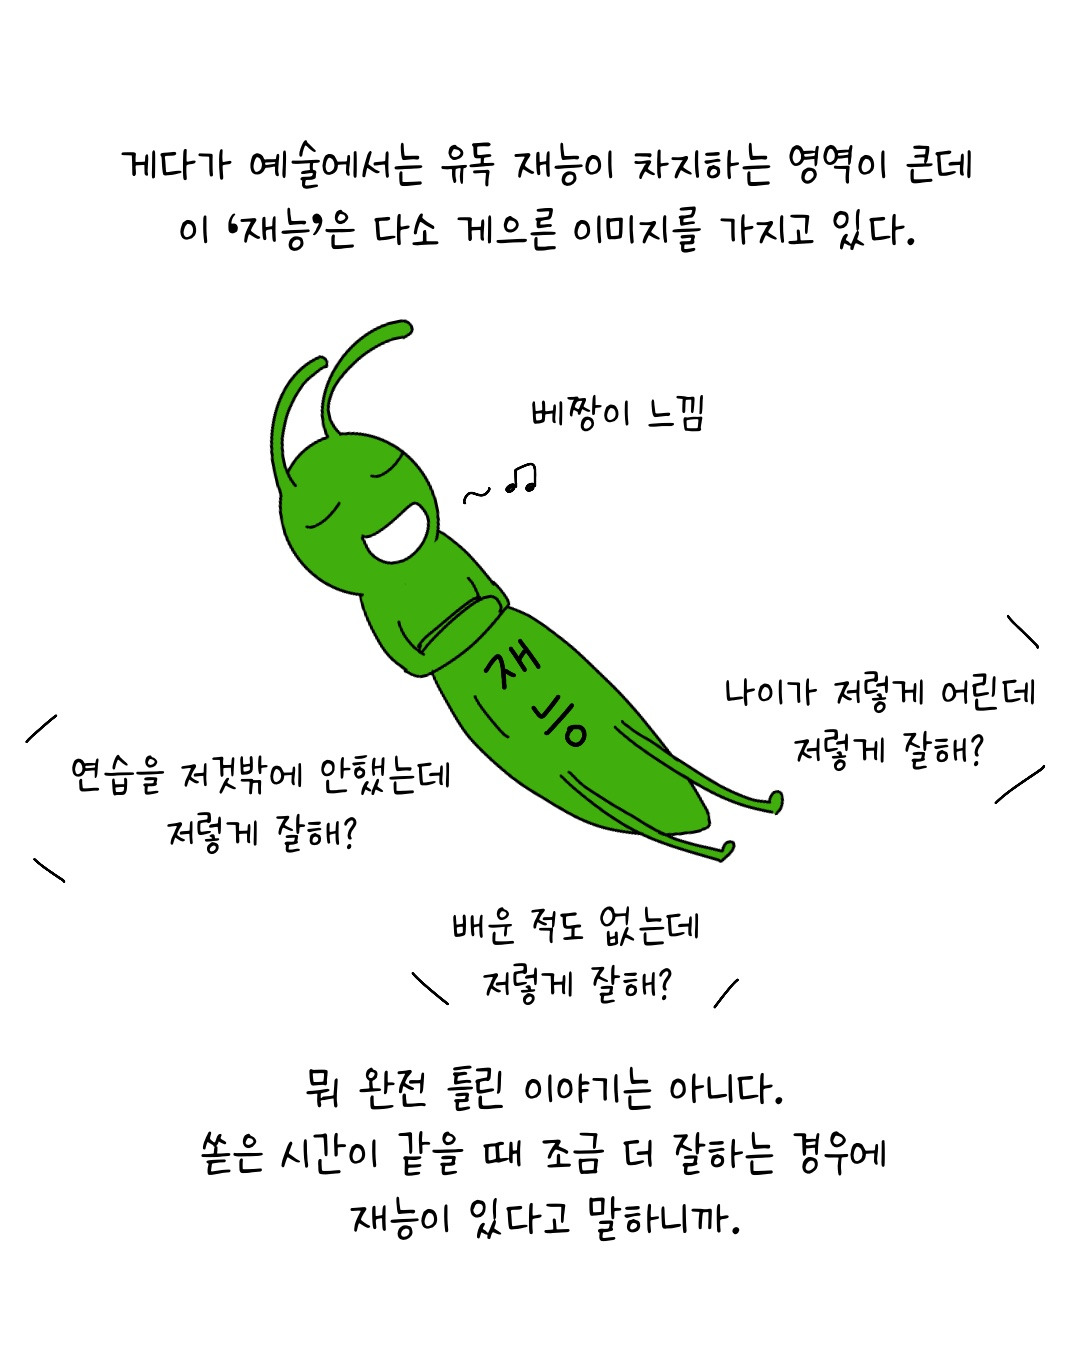 게다가 예술에서는 유독 재능이 차지하는 영역이 큰데
이 ‘재능’은 다소 게으른 이미지를 가지고 있다.
베짱이 느낌
재
능
나이가 저렇게 어린데
저렇게 잘해?
연습을 저것밖에 안했는데
저렇게 잘해?
배운 적도 없는데
저렇게 잘해?
뭐 완전 틀린 이야기는 아니다.
쏟은 시간이 같을 때 조금 더 잘하는 경우에
재능이 있다고 말하니까.